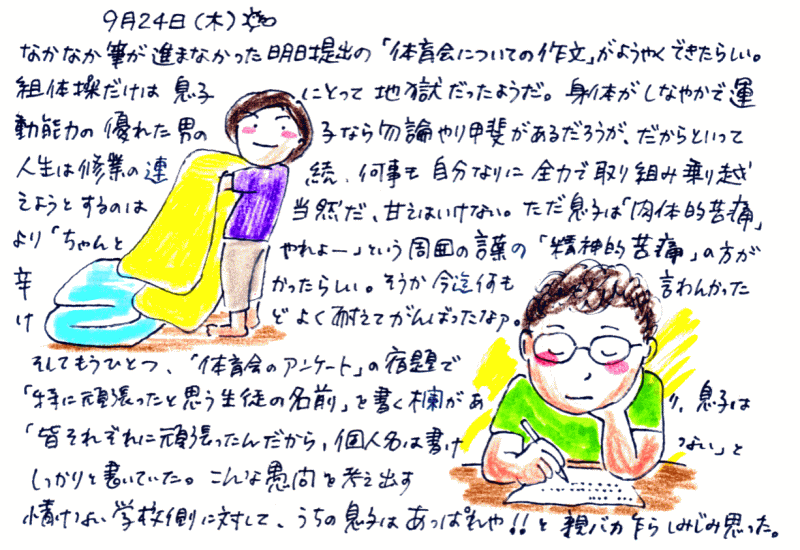 9月24日(木)
なかなか筆が進まなかった明日提出の「体育会についての作文」がようやくできたらしい。
組体操だけは息子にとって地獄だったようだ。身体がしなやかで運
動能力の優れた男の子なら勿論やり甲斐があるだろうが、だからといって
人生は修業の連続、何事も自分なりに全力で取り組み乗り越
えようとするのは当然だ、甘えはいけない。ただ息子は「肉体的苦痛」
より「ちゃんとやれよー」という周囲の言葉の「精神的苦痛」の方が
辛かったらしい。そうか今迄何も言わんかった
けどよく耐えてがんばったなァ。
そしてもうひとつ、「体育会のアンケート」の宿題で
「特に頑張ったと思う生徒の名前」を書く欄があり、息子は
「皆それぞれに頑張ったんだから、個人名は書けない」と
しっかりと書いていた。こんな愚問を考え出す
情けない学校側に対して、うちの息子はあっぱれや!!と親バカ乍らしみじみ思った。